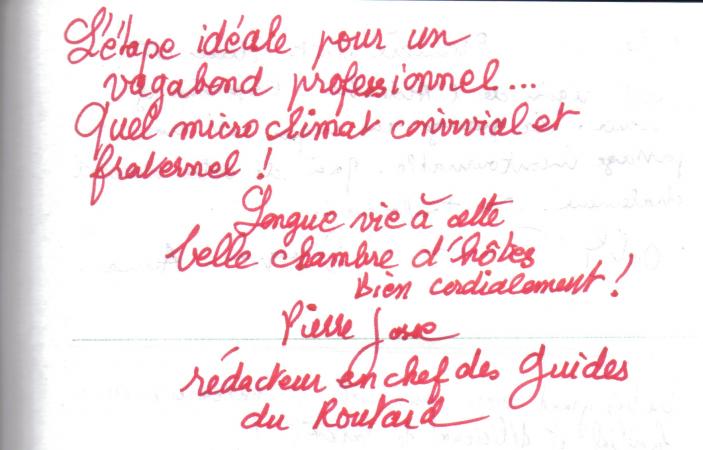 L'étape idéale pour un
vagabond professionnel...
Quel microclimat convivial et
fraternel !
Longue vie à cette
belle chambre d'hôtes
Bien cordialement !
Pierre Josse
rédacteur en chef des Guides
du Routard